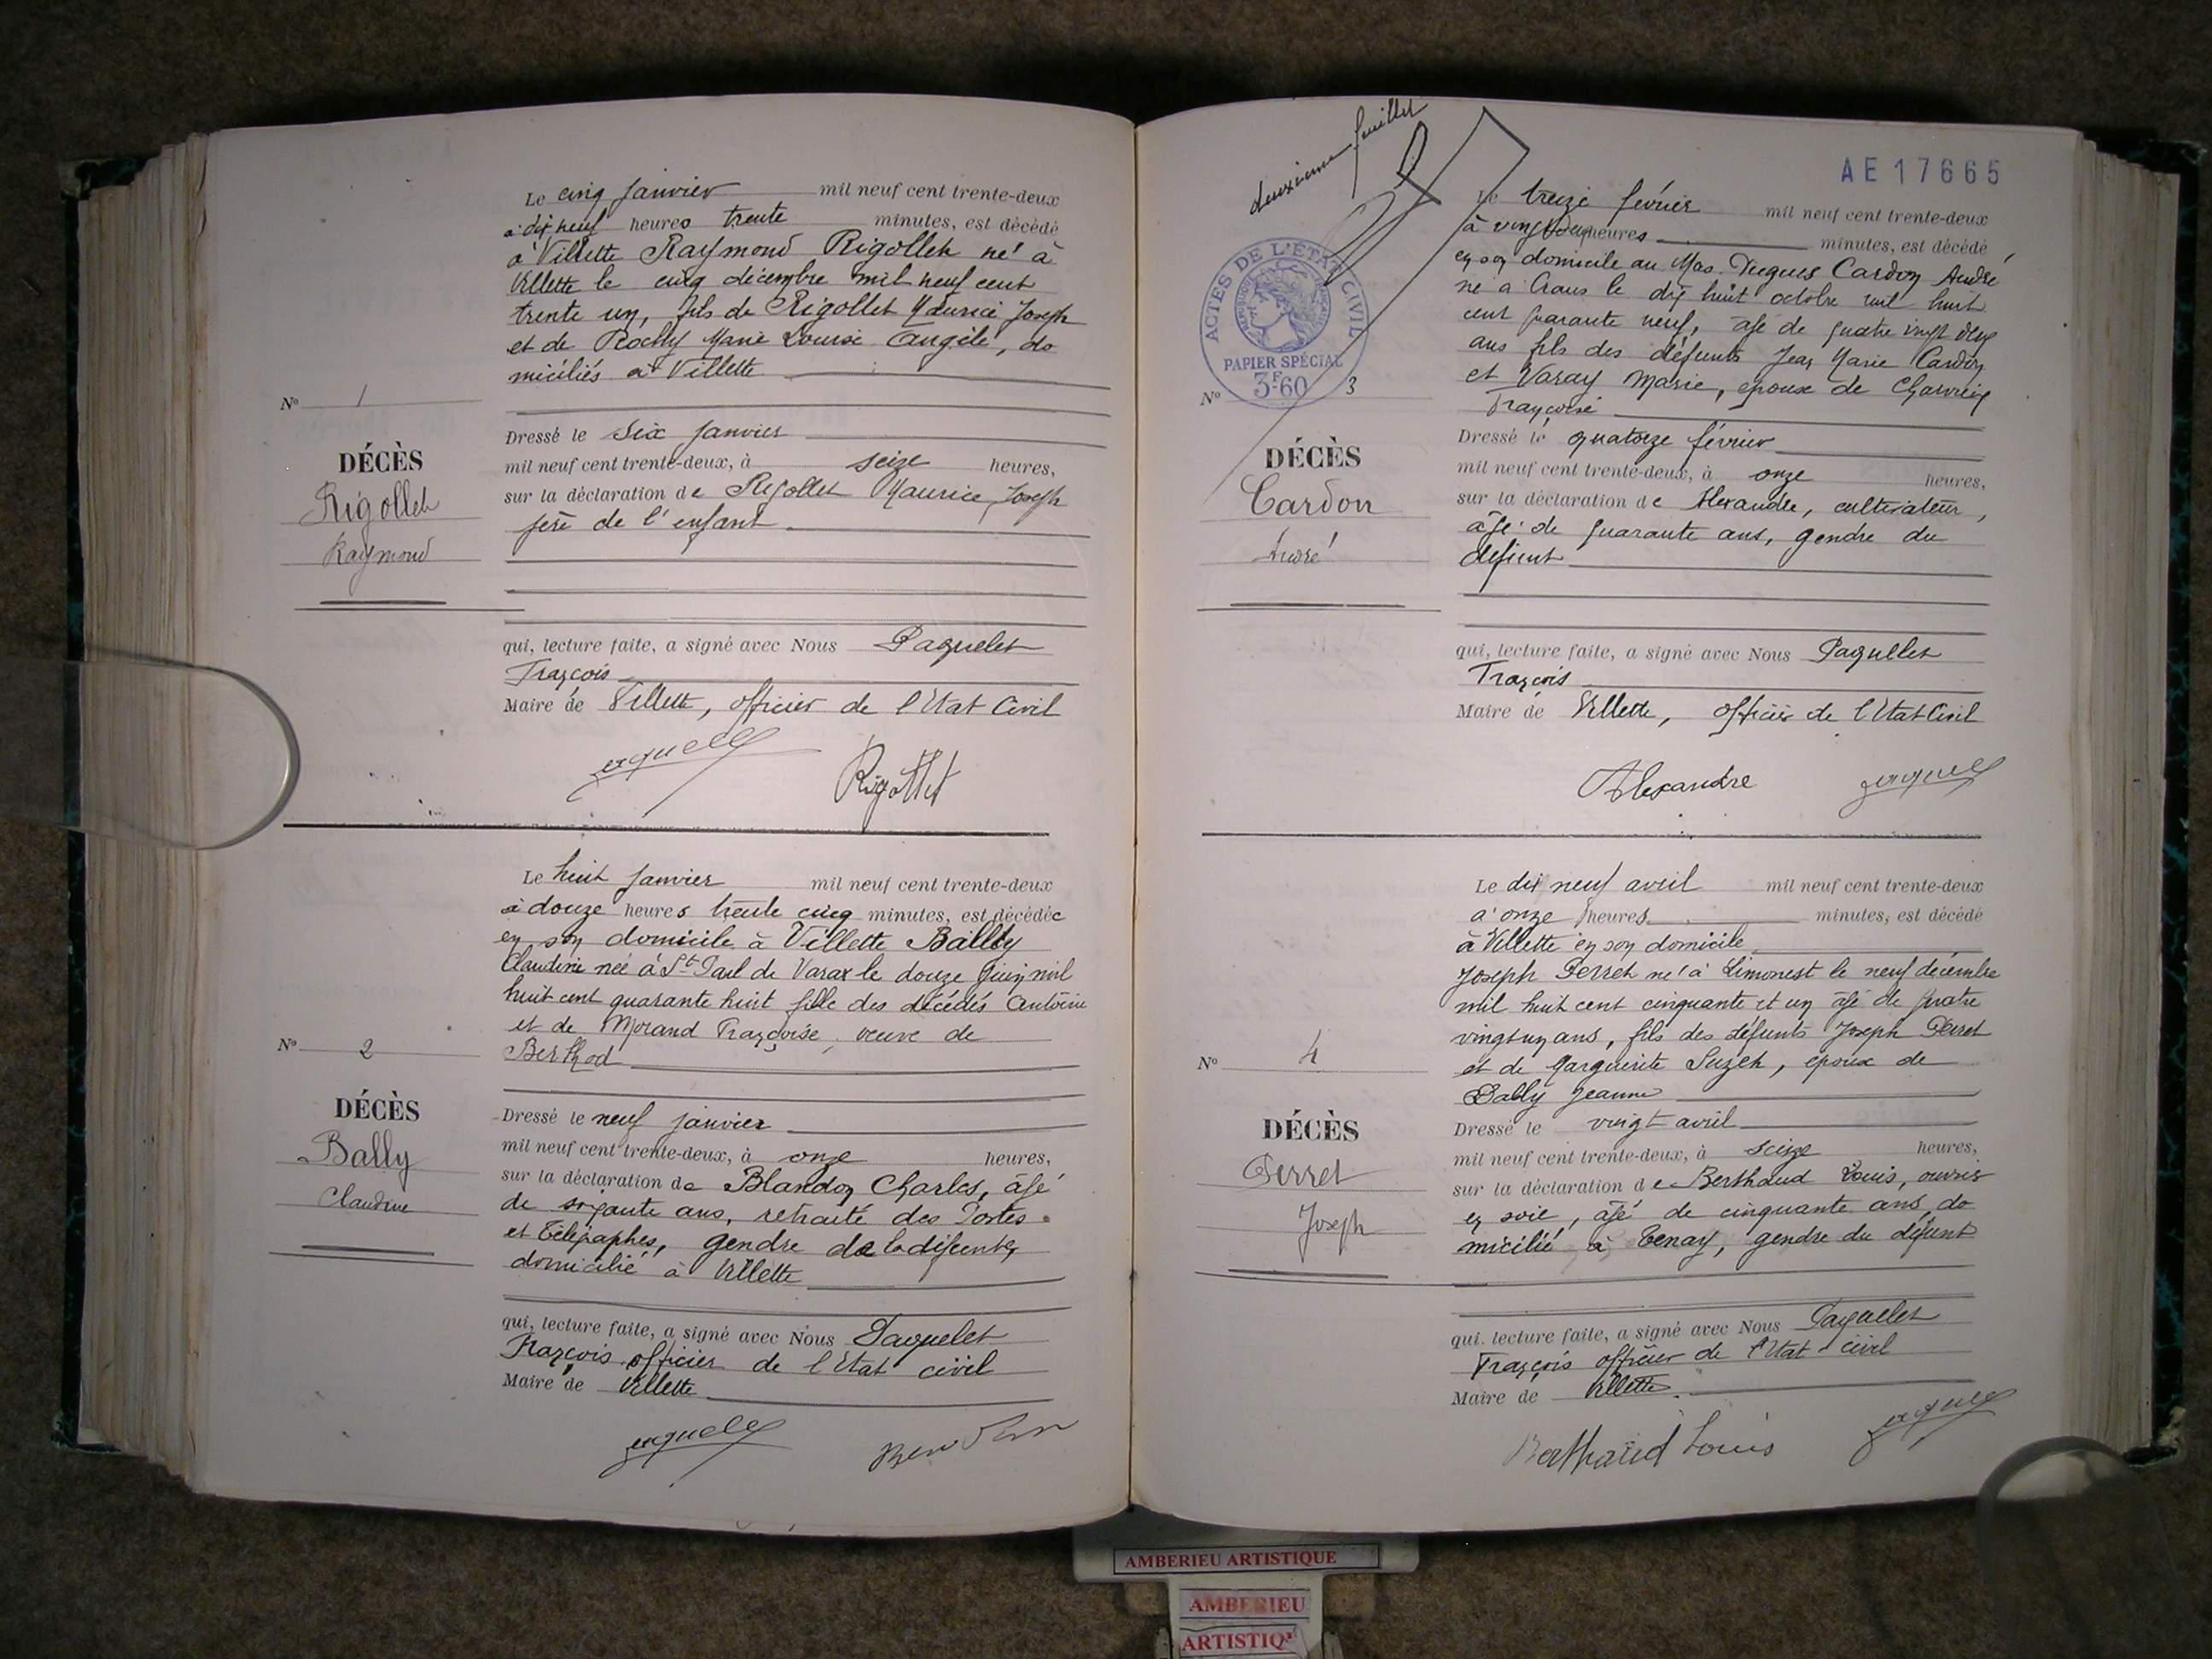 Le cinq Janvier mil neuf cent trente-deux
à dix neuf heures trente minutes, est décédé
à Villette Raymond Rigollet né à
Villette le cinq décembre mil neuf cent
trente un, fils de Rigollet Maurice Joseph
et de Marie Louise Angèle, do
miciliés à Villette
N° 1
DÉCÈS
Rigollet
Raymond
Dressé le Six Janvier
mil neuf cent trente-deux, à seize heures,
sur la déclaration de Rigollet Maurice Joseph
père de l'enfant
qui, lecture faite, a signé avec Nous Paquelet
François
Maire de Villette, officier de l'Etat Civil
Rigollet
Le huit Janvier mil neuf cent trente-deux
à douze heures trente cinq minutes, est décédée
en son domicile à Villette Bally
Claudine née à St Paul de Varax le douze Juin mil
huit cent quarante huit fille des décédés Antoine
et de Morand Françoise, veuve de
Berthod
N° 2
DÉCÈS
Bally
Claudine
Dressé le neuf janvier
mil neuf cent trente-deux, à onze heures,
sur la déclaration de Blandon Charles, âgé
de soixante ans, retraité des Postes
et Télégraphes, gendre de la défunte,
domicilié à Villette
qui, lecture faite, a signé avec Nous Paquelet
François officier de l'Etat civil
Maire de Villette
deuxième feuillet
AE 17665
ACTES DE L'ÉTAT CIVIL
RÉPUBLIQUE FRANÇAISE
PAPIER SPÉCIAL
3F60
Le treize février mil neuf cent trente-deux
à vingt deux heures minutes, est décédé
en son domicile au Mas Dugues Cardon André
né à Crans le dix huit octobre mil huit
cent quarante neuf, âgé de quatre vingt deux
ans fils des défunts Jean Marie Cardon
et Varay Marie, époux de
Françoise
N° 3
DÉCÈS
Cardon
André
Dressé le quatorze février
mil neuf cent trente-deux, à onze heures,
sur la déclaration de Alexandre, cultivateur,
âgé de quarante ans, gendre du
défunt
qui, lecture faite, a signé avec Nous Paquelet
François
Maire de Villette, officier de l'Etat Civil
Alexandre
Le dix neuf avril mil neuf cent trente-deux
à onze heures minutes, est décédé
à Villette en son domicile
Joseph Perret né à Limonest le neuf décembre
mil huit cent cinquante et un âgé de quatre
vingt un ans, fils des défunts Joseph Perret
et de Marguerite Suzet, époux de
Bally Jeanne
N° 4
DÉCÈS
Perret
Joseph
Dressé le vingt avril
mil neuf cent trente-deux, à seize heures,
sur la déclaration de Berthaud Louis, ouvrier
en soie, âgé de cinquante ans, do
micilié à Tenay, gendre du défunt
qui, lecture faite, a signé avec Nous Paquelet
François officier de l'Etat civil
Maire de Villette
Berthaud Louis
AMBERIEU ARTISTIQUE
AMBERIEU
ARTISTIQ